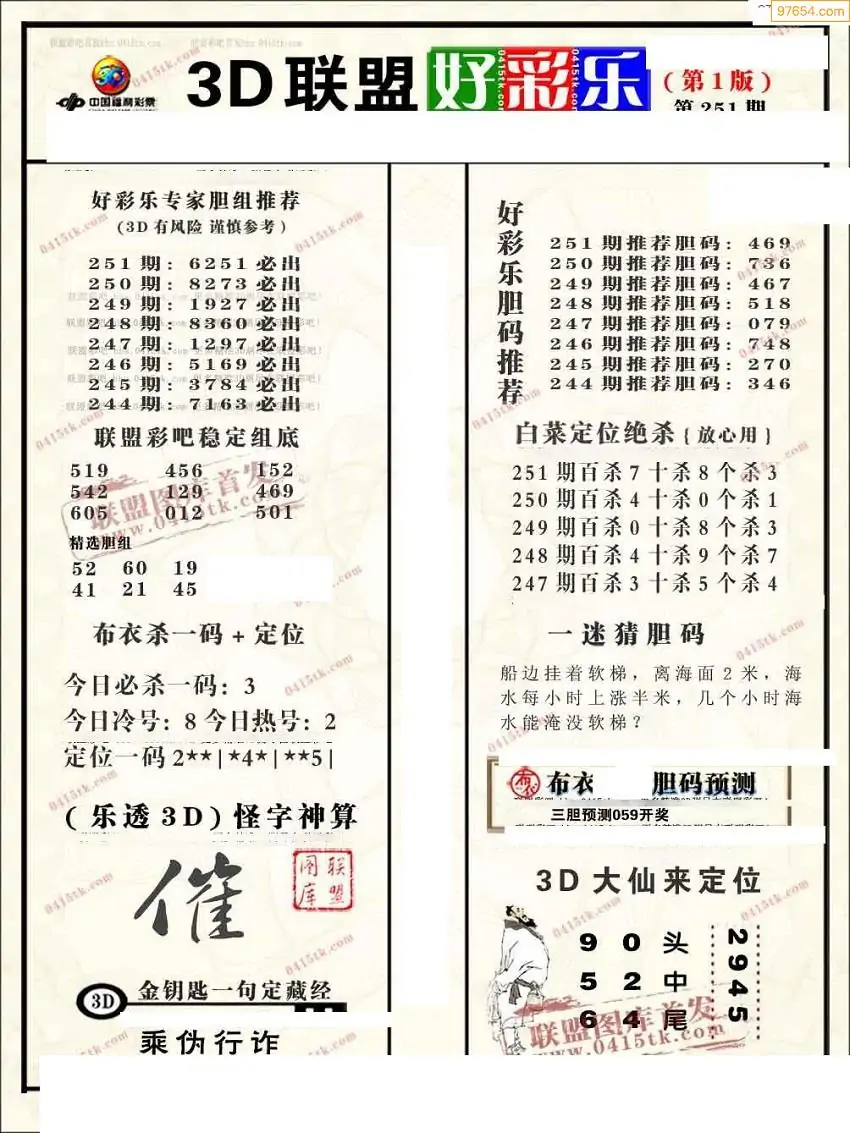 97654.com
中国福利彩票
3D联盟好彩乐
(第1版)
第251期
好彩乐专家胆组推荐
(3D有风险 谨慎参考)
251期: 6251必出
250期: 8273必出
249期: 1927必出
248期: 8360必出
247期: 1297必出
246期: 5169必出
245期: 3784必出
244期: 7163必出
联盟彩吧稳定组底
519 456 152
542 129 469
605 012 501
联盟图库首发
www.0415tk.com
精选胆组
52 60 19
41 21 45
布衣杀一码+定位
今日必杀一码: 3
今日冷号: 8 今日热号: 2
定位一码 2**|*4*|**5|
(乐透3D)怪字神算
催
联盟图库
3D 金钥匙一句定藏经
乘伪行诈
好彩乐胆码推荐
251期推荐胆码: 469
250期推荐胆码: 736
249期推荐胆码: 467
248期推荐胆码: 518
247期推荐胆码: 079
246期推荐胆码: 748
245期推荐胆码: 270
244期推荐胆码: 346
白菜定位绝杀{放心用}
251期百杀7十杀8个杀3
250期百杀4十杀0个杀1
249期百杀0十杀8个杀3
248期百杀4十杀9个杀7
247期百杀3十杀5个杀4
一迷猜胆码
船边挂着软梯，离海面2米，海
水每小时上涨半米，几个小时海
水能淹没软梯？
布衣 胆码预测
三胆预测059开奖
3D大仙来定位
9 0 头
5 2 中
6 4 尾
2945
联盟图库首发
www.0415tk.com
0415tk.com